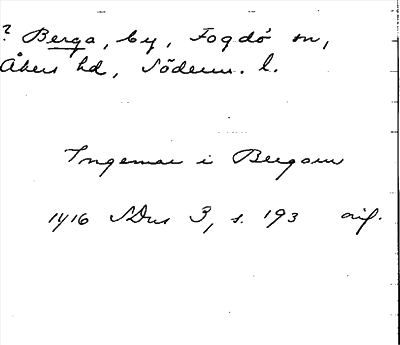 ? Berga, by, Fogdö sn,
Åkers hd, Söderm. l.
Ingemar i Bergom
1416 SDns 3, s. 193 orig.